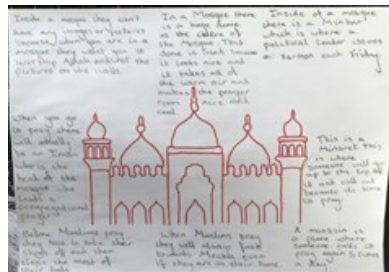 Inside a mosque they can't
have any images or pictures
because when you are in a
mosque they want you to
worship Allah and not the
pictures on the walls
In a Mosque there
is a huge dome
at the centre of
the Mosque. This
dome is used because
it looks nice and
it takes all of
the warm air and
makes the prayer
room nice and
cool
Inside of a mosque
there is a Minbar
which is where a
political leader gives
a sermon each friday
When you go
to pray there
will usually
be an Imam
who is the
head of the
mosque who
leads a
congregational
prayer
This is a
Minaret this
is where
someone will go
up to the top of
it and call out
because its time
to pray.
Before Muslims pray
they have to take their
shoes off and then
clean the most of
their
When Muslims pray
they will always face
towards Mecca even
if they are in their home
A is
a place where
someone calls to
pray again 5 times
a day